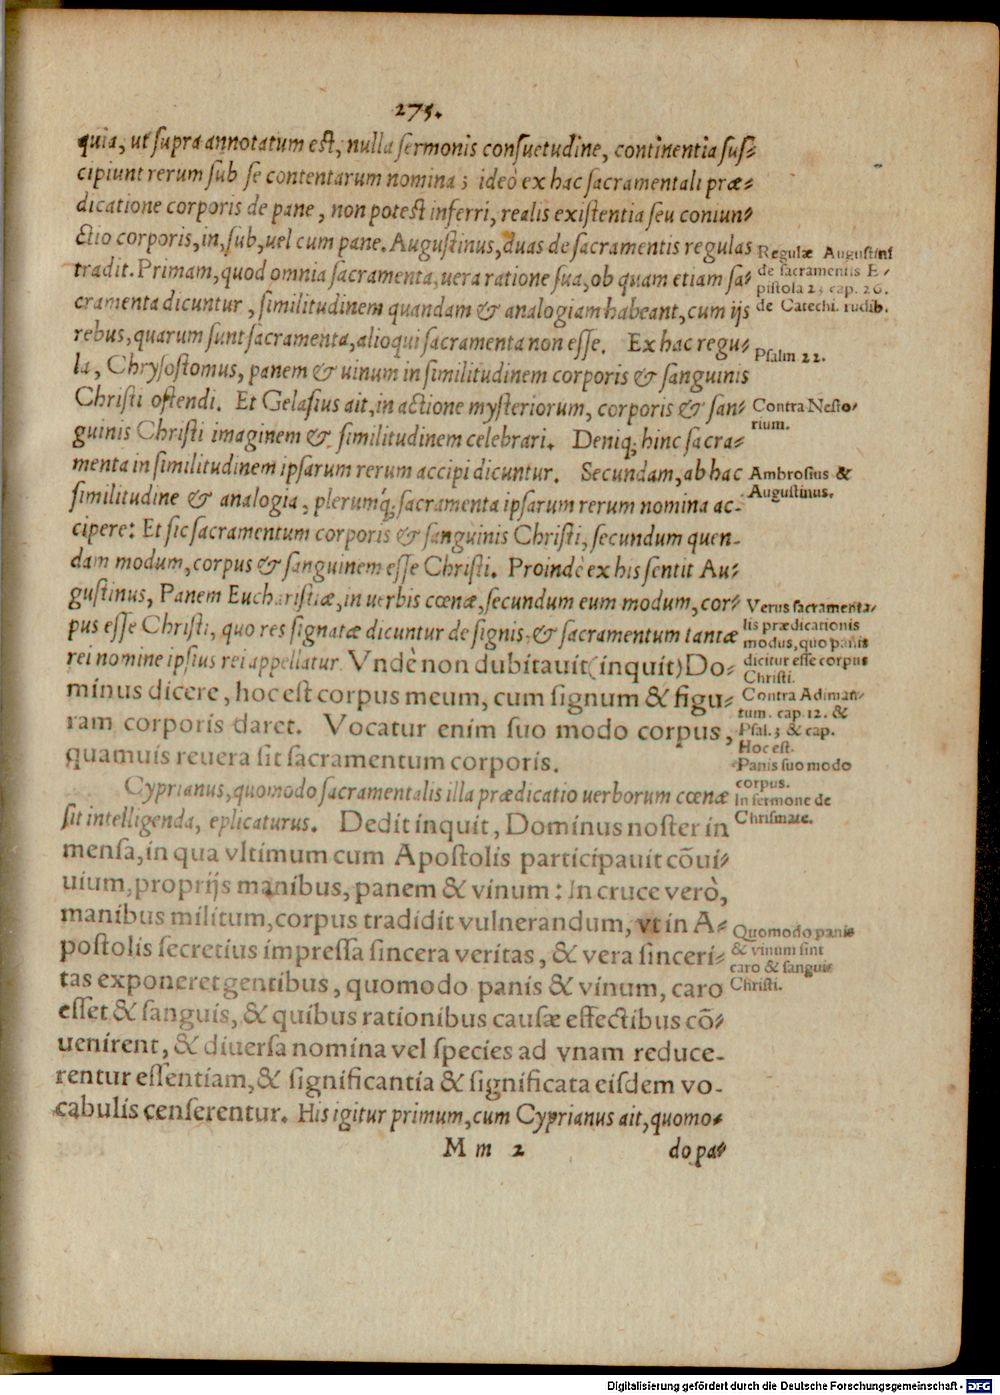 275.
quia, ut supra annotatum est, nulla sermonis consuetudine, continentia sus⸗
cipiunt rerum sub se contentarum nomina; ideò ex hac sacramentali præ⸗
dicatione corporis de pane, non potest inferri, realis existentia seu coniun⸗
ctio corporis, in, sub, uel cum pane. Augustinus, duas de sacramentis regulas
tradit. Primam, quod omnia sacramenta, uera ratione sua, ob quam etiam sa⸗
cramenta dicuntur, similitudinem quandam & analogiam habeant, cum ijs
rebus, quarum sunt sacramenta, alioqui sacramenta non esse. Ex hac regu⸗
la, Chrysostomus, panem & uinum in similitudinem corporis & sanguinis
Christi ostendi. Et Gelasius ait, in actione mysteriorum, corporis & san⸗
guinis Christi imaginem & similitudinem celebrari. Deniq; hinc sacra⸗
menta in similitudinem ipsarum rerum accipi dicuntur. Secundam, ab hac
similitudine & analogia, plerumq́; sacramenta ipsarum rerum nomina ac-
cipere: Et sic sacramentum corporis & sanguinis Christi, secundum quen-
dam modum, corpus & sanguinem esse Christi. Proindè ex his sentit Au⸗
gustinus, Panem Eucharistiæ, in uerbis cœnæ, secundum eum modum, cor⸗
pus esse Christi, quo res signatæ dicuntur de signis, & sacramentum tantæ
rei nomine ipsius rei appellatur. Vndè non dubitauit (inquit) Do⸗
minus dicere, hoc est corpus meum, cum signum & figu⸗
ram corporis daret. Vocatur enim suo modo corpus,
quamuis reuera sit sacramentum corporis.
Cyprianus, quomodo sacramentalis illa prædicatio uerborum cœnæ
sit intelligenda, eplicaturus. Dedit inquit, Dominus noster in
mensa, in qua vltimum cum Apostolis participauit cõui⸗
uium, proprijs manibus, panem & vinum: In cruce verò,
manibus militum, corpus tradidit vulnerandum, vt in A⸗
postolis secretius impressa sincera veritas, & vera sinceri⸗
tas exponeret gentibus, quomodo panis & vinum, caro
esset & sanguis, & quibus rationibus causæ effectibus cõ⸗
uenirent, & diuersa nomina vel species ad vnam reduce-
rentur essentiam, & significantia & significata eisdem vo-
cabulis censerentur. His igitur primum, cum Cyprianus ait, quomo⸗
M m 2
do pa⸗
Regulæ Augustini
de sacramentis E⸗
pistola 23 cap. 26.
de Catechi. rudib.
Psalm 22.
Contra Nesto⸗
rium.
Ambrosius &
Augustinus.
Verus sacramenta⸗
lis prædicationis
modus, quo panis
dicitur esse corpus
Christi.
Contra Adiman⸗
tum. cap 12. &
Psal. 3 & cap.
Hoc est.
Panis suo modo
corpus.
In sermone de
Chrismate.
Quomodo panis
& vinum sint
caro & sanguis
Christi.
Digitalisierung gefördert durch die Deutsche Forschungsgemeinschaft - DFG